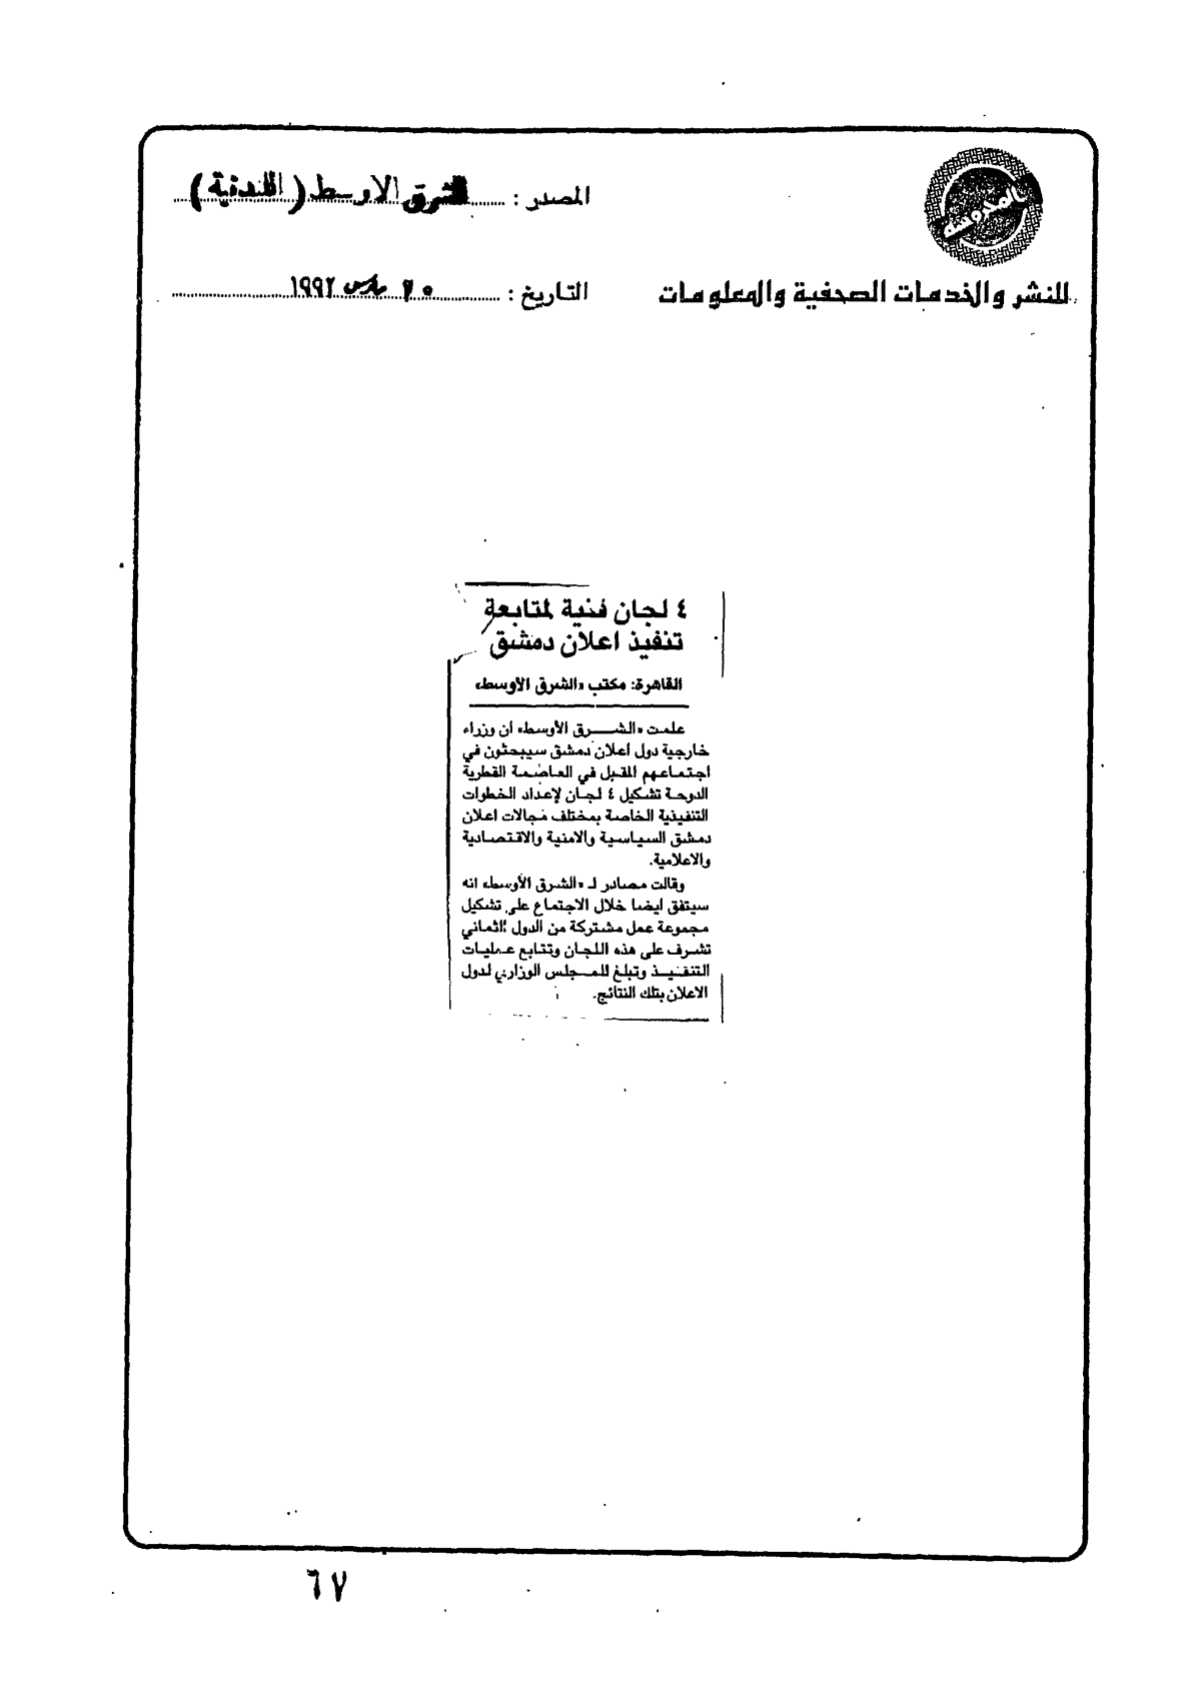 المصدر : الشرق الاوسط (اللندنية)
للنشر والخدمات الصحفية والمعلومات
التاريخ : ٢٥ مارس ١٩٩٢
٤ لجان فنية لمتابعة
تنفيذ اعلان دمشق
القاهرة: مكتب «الشرق الأوسط»
علمت «الشرق الأوسط» ان وزراء
خارجية دول اعلان دمشق سيبحثون في
اجتماعهم المقبل في العاصمة القطرية
الدوحة تشكيل ٤ لجان لإعداد الخطوات
التنفيذية الخاصة بمختلف مجالات اعلان
دمشق السياسية والامنية والاقتصادية
والاعلامية.
وقالت مصادر لـ «الشرق الأوسط» انه
سيتفق ايضا خلال الاجتماع على تشكيل
مجموعة عمل مشتركة من الدول الثماني
تشرف على هذه اللجان وتتابع عمليات
التنفيذ وتبلغ للمجلس الوزاري لدول
الاعلان بتلك النتائج.
٦٧